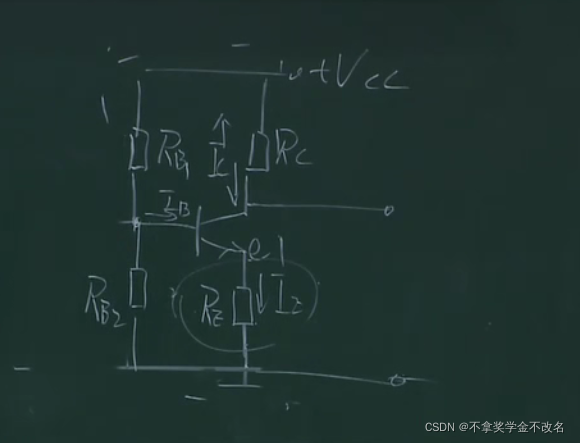 +VCC
RB1
IC
RC
IB
e
RB2
RE
IE
CSDN @不拿奖学金不改名